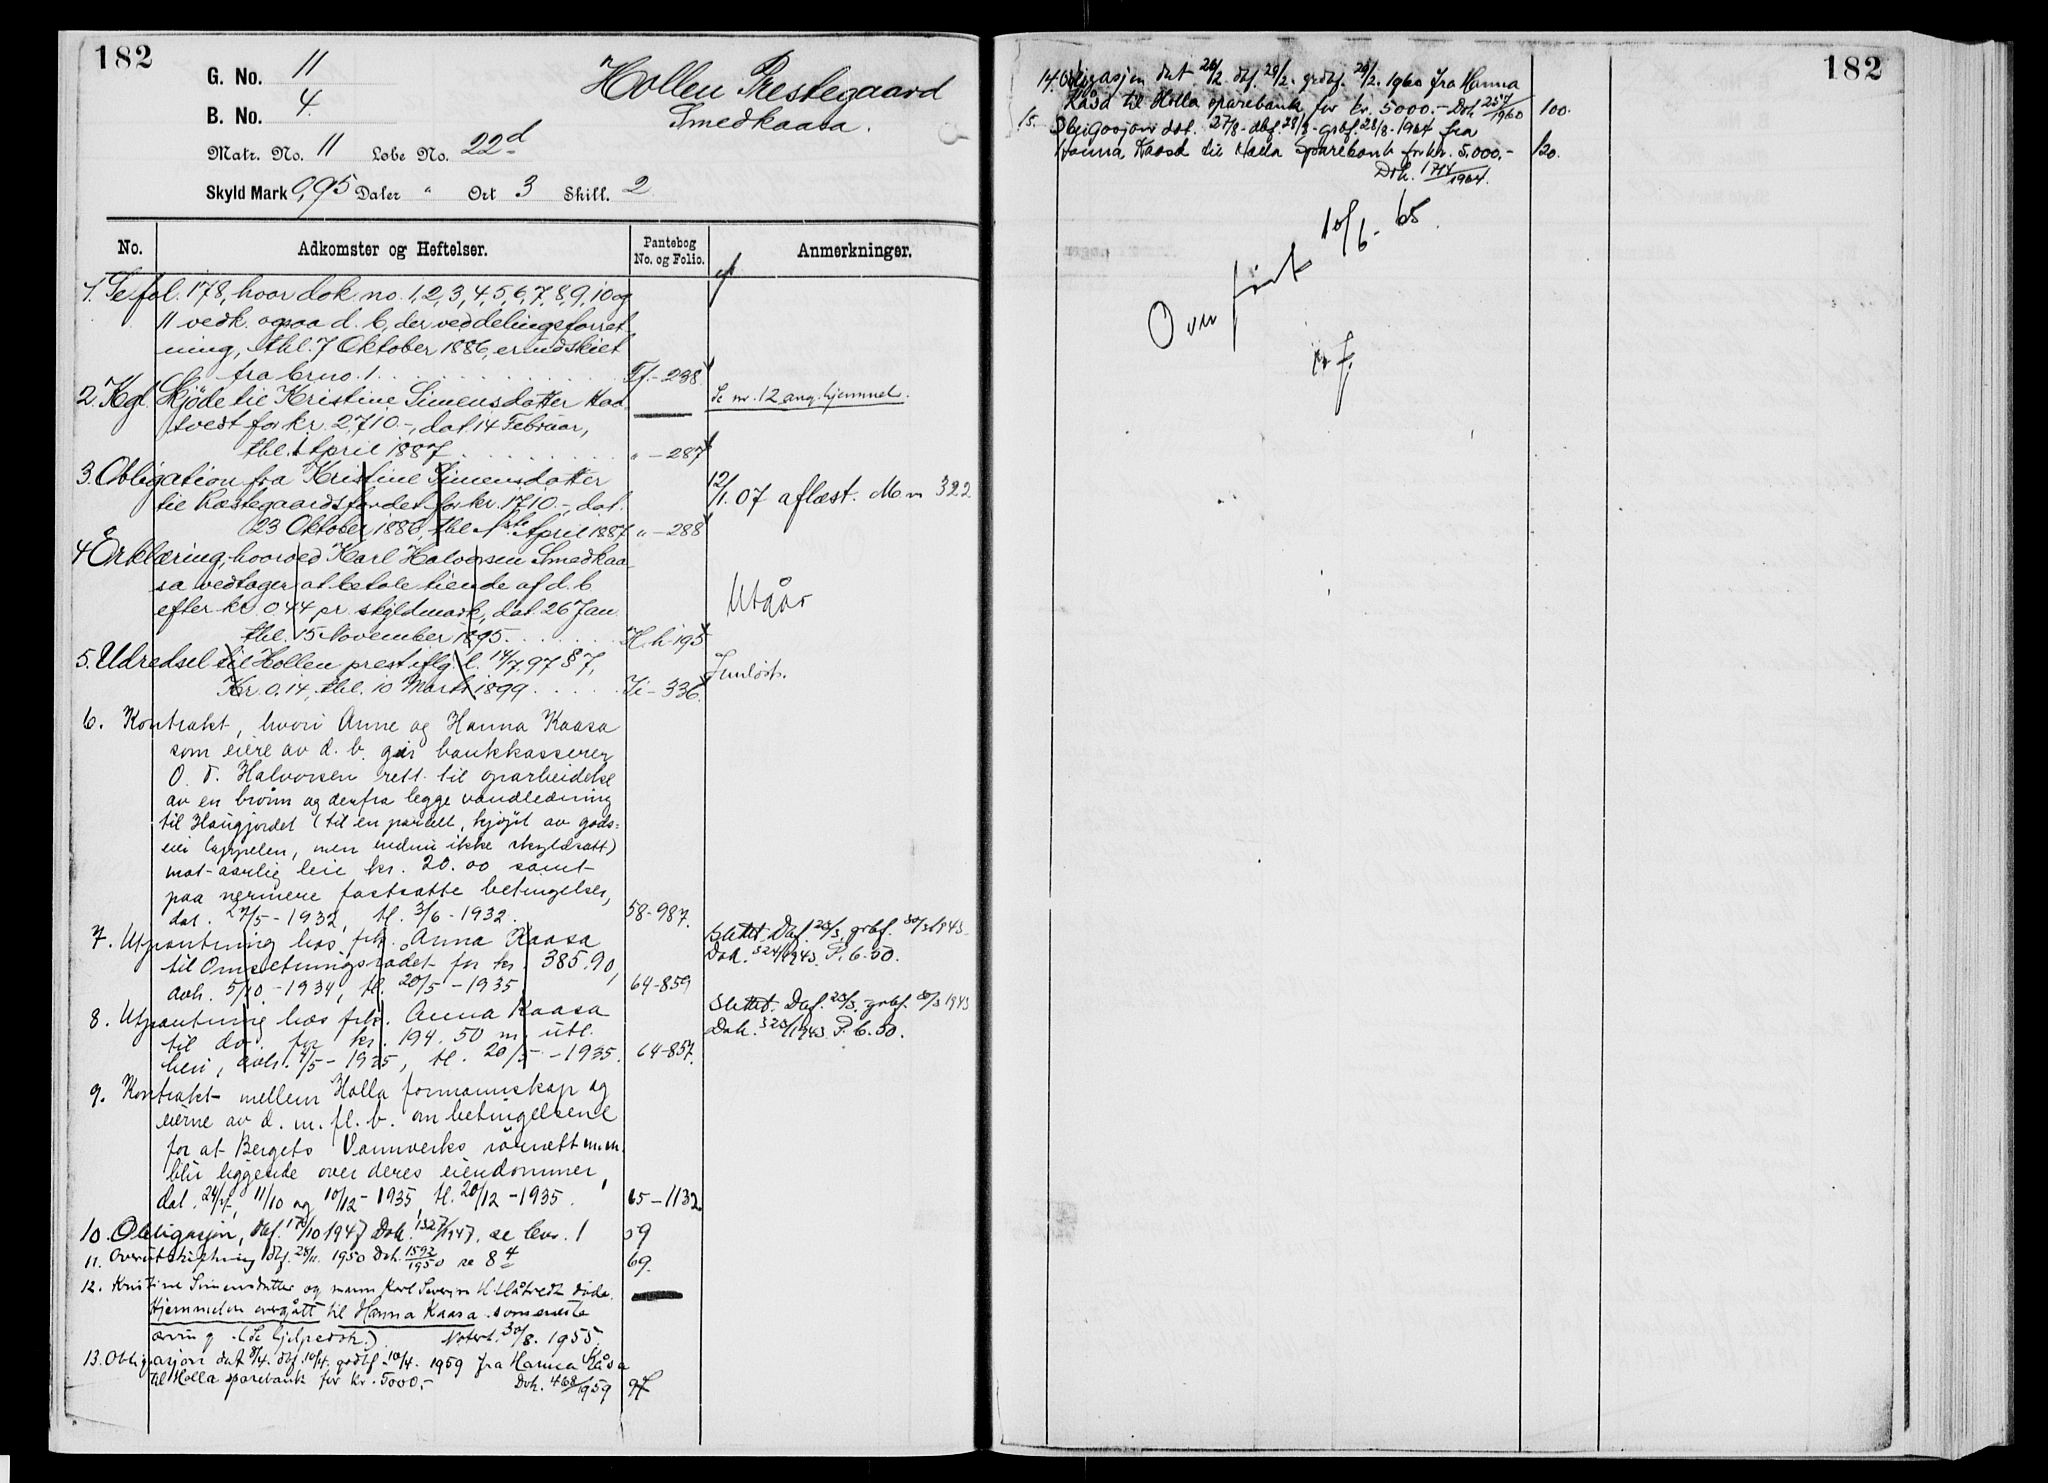 182
G. No. 11
B. No. 4.
Matr. No. 11 Løbe No. 22d
Skyld Mark 0,95 Daler " Ort 3 Skill. 2
Hollen Prestegaard
Smedkaasa.
No. Adkomster og Heftelser. Pantebog No. og Folio. Anmerkninger.
1. Se fol. 178, hvor dok. no. 1, 2, 3, 4, 5, 6, 7, 8, 9, 10 og
11 vedk. ogsaa d. b, der ved delingsforret-
ning, thl. 7 Oktober 1886, er udskilt
fra brno. 1. Ff - 238
2. Kgl. Skjøde til Kristine Simensdatter Haa- Se nr. 12 ang. hjemmel.
tvedt for kr. 2,710.-, dat. 14 Februar,
thl. 1 April 1887 " - 287
3. Obligation fra Kristine Simensdatter
til Præstegaardsfondet for kr. 1710.-, dat. 12/1. 07 aflæst. M n 322
23 Oktober 1886, thl. 1ste April 1887 " - 288
4 Erklæring, hvorved Karl Halvorsen Smedkaa-
sa vedtager at betale tiende af d. b
efter kr 0.44 pr. skyldmark, dat. 26 Jan Utgår
thl. 15 November 1895. H. h 195
5. Udredsel til Hollen prest iflg. l. 14/7.97 § 7, Innløst.
Kr. 0,14, thl. 10 Marts 1899. Ii - 336
6. Kontrakt, hvori Anne og Hanna Kaasa
som eiere av d. b. gir bankkasserer
O. T. Halvorsen rett til oparbeidelse
av en brønn og derfra legge vandledning
til Haugjordet (til en parcell, kjøpt av gods-
eier Cappelen, men endnu ikke skyldsatt)
mot aarlig leie kr. 20.00 samt
paa nermere fastsatte betingelser,
dat. 27/5 - 1932, tl. 3/6 - 1932. 58-987.
7. Utpantning hos frk. Anna Kaasa Slettet. Daf. 29/3, grbf. 30/3 1943.
til Omsetningsrådet for kr. 385.90, Dok. 324/1943. P. 6.50.
avh. 5/10 - 1934, tl. 20/5 - 1935 64-859
8. Utpantning hos frk. Anna Kaasa Slettet. Daf. 29/3, grbf. 30/3 1943
til do. for kr. 194.50 m. utl. Dok. 323/1943. P. 6.50.
heri, avh. 4/5 - 1935, tl. 20/5 - 1935. 64-857.
9. Kontrakt mellem Holla formannskap og
eierne av d. m. fl. b. om betingelsene
for at Bergets Vannverks rörnett m.m.
blir liggende over deres eiendommer,
11/10 og 10/12 - 1935, tl. 20/12 - 1935. 65-1132.
10. Obligasjon, daf. 17/10 1947 Dok. 1327/1947. se bnr. 1 59
11. Overutskiftning dbf. 28/11. 1950 Dok. 1592/1950 se 84 69.
12. Kristine Simensdatter og mann Karl Severin H. Håtvedt døde.
Hjemmelen overgått til Hanna Kaasa som eneste
arving. (Se hjelpedok.) Notert. 30/8. 1955.
13. Obligasjon dat 8/4. dbf. 10/4. grdbf. 10/4. 1959 fra Hanna Kåsa
til Holla sparebank for kr. 5000.- Dok. 468/1959 97
182
14. Obligasjon dat 26/2. dbf. 29/2. grdbf. 29/2. 1960 fra Hanna
Kåsa til Holla sparebank for kr. 5000.- Dok 257/1960 100.
15. Obligasjon dat. 27/8 - dbf. 28/8 - grbf. 28/8 - 1964 fra
Hanna Kaasa til Holla Sparebank for kr. 5.000.- 120.
Dok. 1744/1964.
Overført 10/6 - 65.